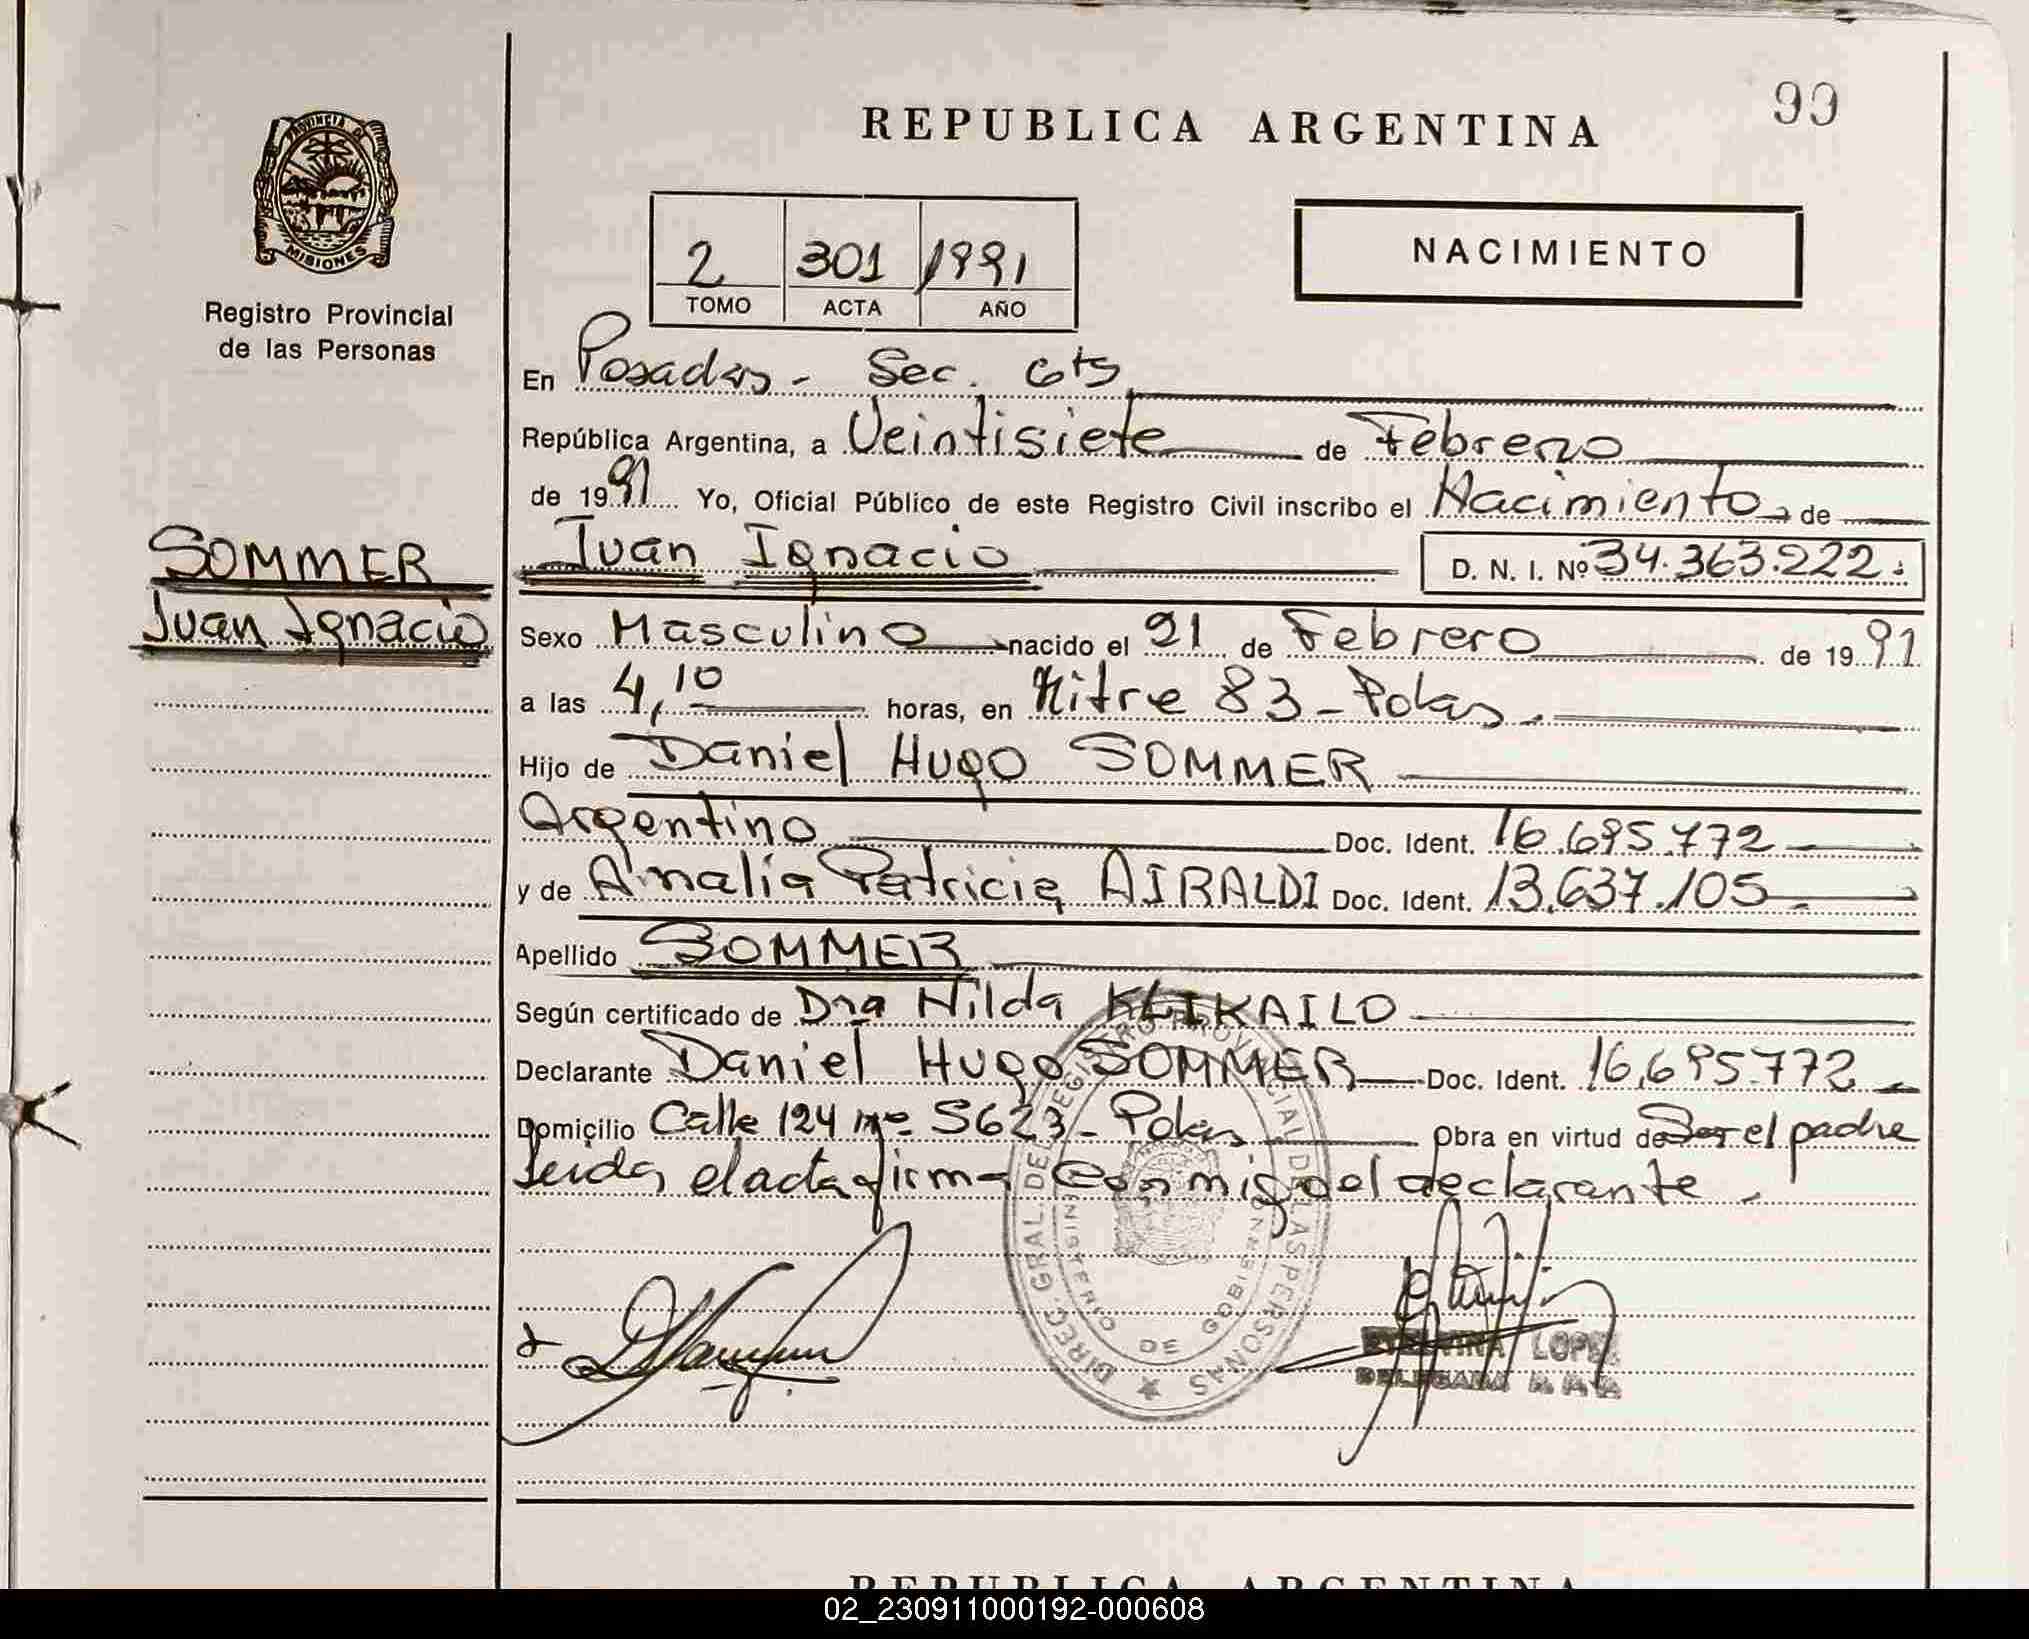 99
REPUBLICA ARGENTINA
PROVINCIA DE
MISIONES
Registro Provincial
de las Personas
2 301 1991
TOMO ACTA AÑO
NACIMIENTO
En Posadas - Sec. 6ts
República Argentina, a Veintisiete de Febrero
de 1991 Yo, Oficial Público de este Registro Civil inscribo el Nacimiento de
SOMMER
Juan Ignacio
Juan Ignacio D. N. I. Nº 34.363.222.
Sexo Masculino nacido el 21 de Febrero de 1991
a las 4,10 horas, en Mitre 83 - Pdas.
Hijo de Daniel Hugo SOMMER
Argentino Doc. Ident. 16.695.772
y de Amalia Patricia AIRALDI Doc. Ident. 13.637.105
Apellido SOMMER
Según certificado de Dra Hilda KLIKAILO
Declarante Daniel Hugo SOMMER Doc. Ident. 16.695.772
Domicilio Calle 124 nº 5623 - Pdas Obra en virtud de Ser el padre
Leida el acta firma conmigo el declarante.
DIREC. GRAL. DEL REGISTRO PROVINCIAL DE LAS PERSONAS
MINISTERIO DE GOBIERNO
LOPEZ
DELEGADA
REPUBLICA ARGENTINA
02_230911000192-000608